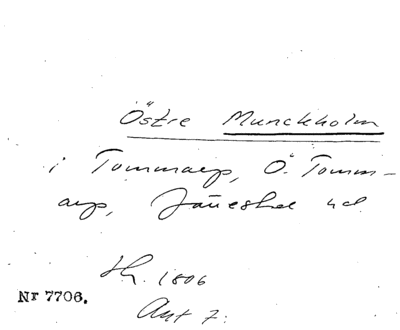 Östre Munckholm
i Tommarp, Ö. Tomm-
arp, Järrestad hd.
Sk. 1806
Nr 7706.
Akt 7.